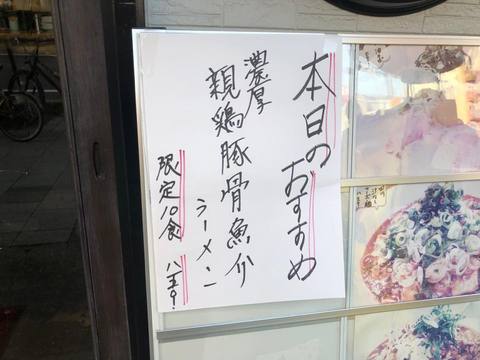 本日のおすすめ
濃厚
親鶏豚骨魚介
ラーメン
限定10食 八五〇.